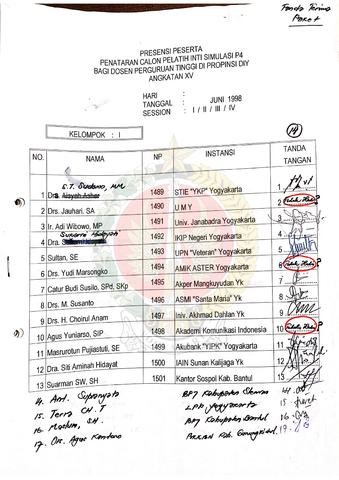 Tanda Terima
Paket
PRESENSI PESERTA
PENATARAN CALON PELATIH INTI SIMULASI P4
BAGI DOSEN PERGURUAN TINGGI DI PROPINSI DIY
ANGKATAN XV
HARI :
TANGGAL : JUNI 1998
SESSION : I / II / III / IV
KELOMPOK : I
14
NO. NAMA NP INSTANSI TANDA TANGAN
1 Dra. Aisyah Asher S.T. MM 1489 STIE "YKP" Yogyakarta 1
2 Drs. Jauhari, SA 1490 U M Y 2 ?
3 Ir. Adi Wibowo, MP 1491 Univ. Janabadra Yogyakarta 3
4 Dra. 1492 IKIP Negeri Yogyakarta 4
5 Sultan, SE 1493 UPN "Veteran" Yogyakarta 5
6 Drs. Yudi Marsongko 1494 AMIK ASTER Yogyakarta 6 ?
7 Catur Budi Susilo, SPd, SKp 1495 Akper Mangkuyudan Yk 7
8 Drs. M. Susanto 1496 ASMI "Santa Maria" Yk 8
9 Drs. H. Choirul Anam 1497 Univ. Akhmad Dahlan Yk 9
10 Agus Yuniarso, SIP 1498 Akademi Komunikasi Indonesia 10 ?
11 Masrurotun Pujiastuti, SE 1499 Akubank "YIPK" Yogyakarta 11
12 Dra. Siti Aminah Hidayat 1500 IAIN Sunan Kalijaga Yk 12
13 Suarman SW, SH 1501 Kantor Sospol Kab. Bantul 13
Ant. Supriyate BP7 Kabupaten Sleman
15. LPM Yogyakarta 15
16. SH. BP7 Kabupaten Bantul 16
17. Drs. Agus Kab. Gunungkidul